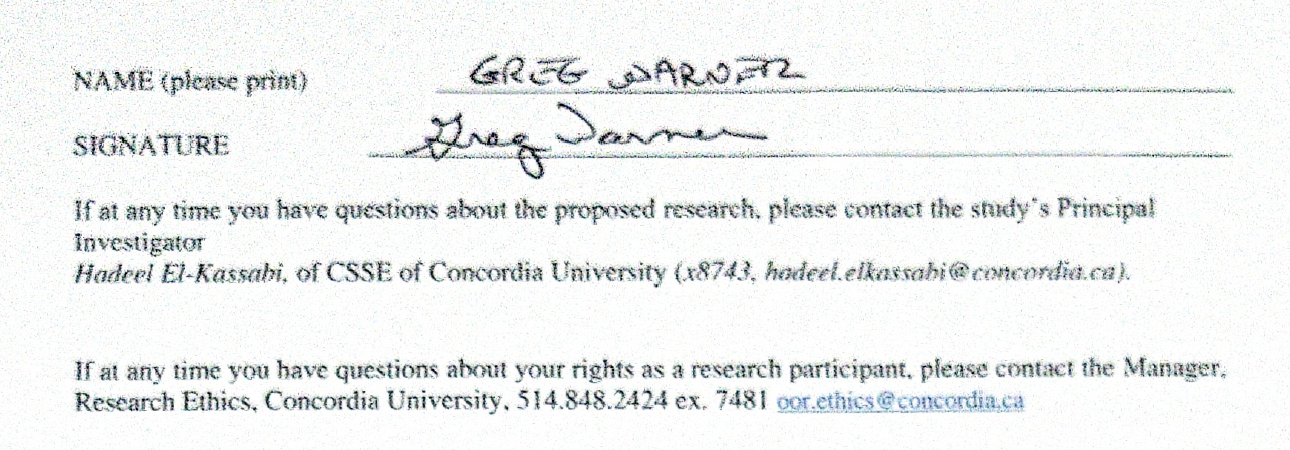 NAME (please print) GREG WARNER
SIGNATURE Greg Warner
If at any time you have questions about the proposed research, please contact the study's Principal
Investigator
Hadeel El-Kassabi, of CSSE of Concordia University (x8743, hadeel.elkassabi@concordia.ca).
If at any time you have questions about your rights as a research participant, please contact the Manager,
Research Ethics, Concordia University, 514.848.2424 ex. 7481 oor.ethics@concordia.ca